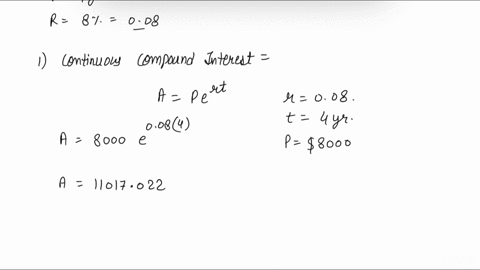 R = 8% = 0.08
1) Continuous Compound Interest =
A = Pe^rt
r = 0.08.
t = 4 yr.
A = 8000 e^0.08(4)
P = $8000
A = 11017.022